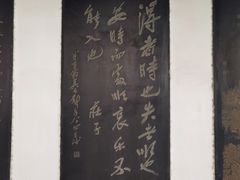 得者時也失者順也
安時而處順哀樂不
能入也
莊子